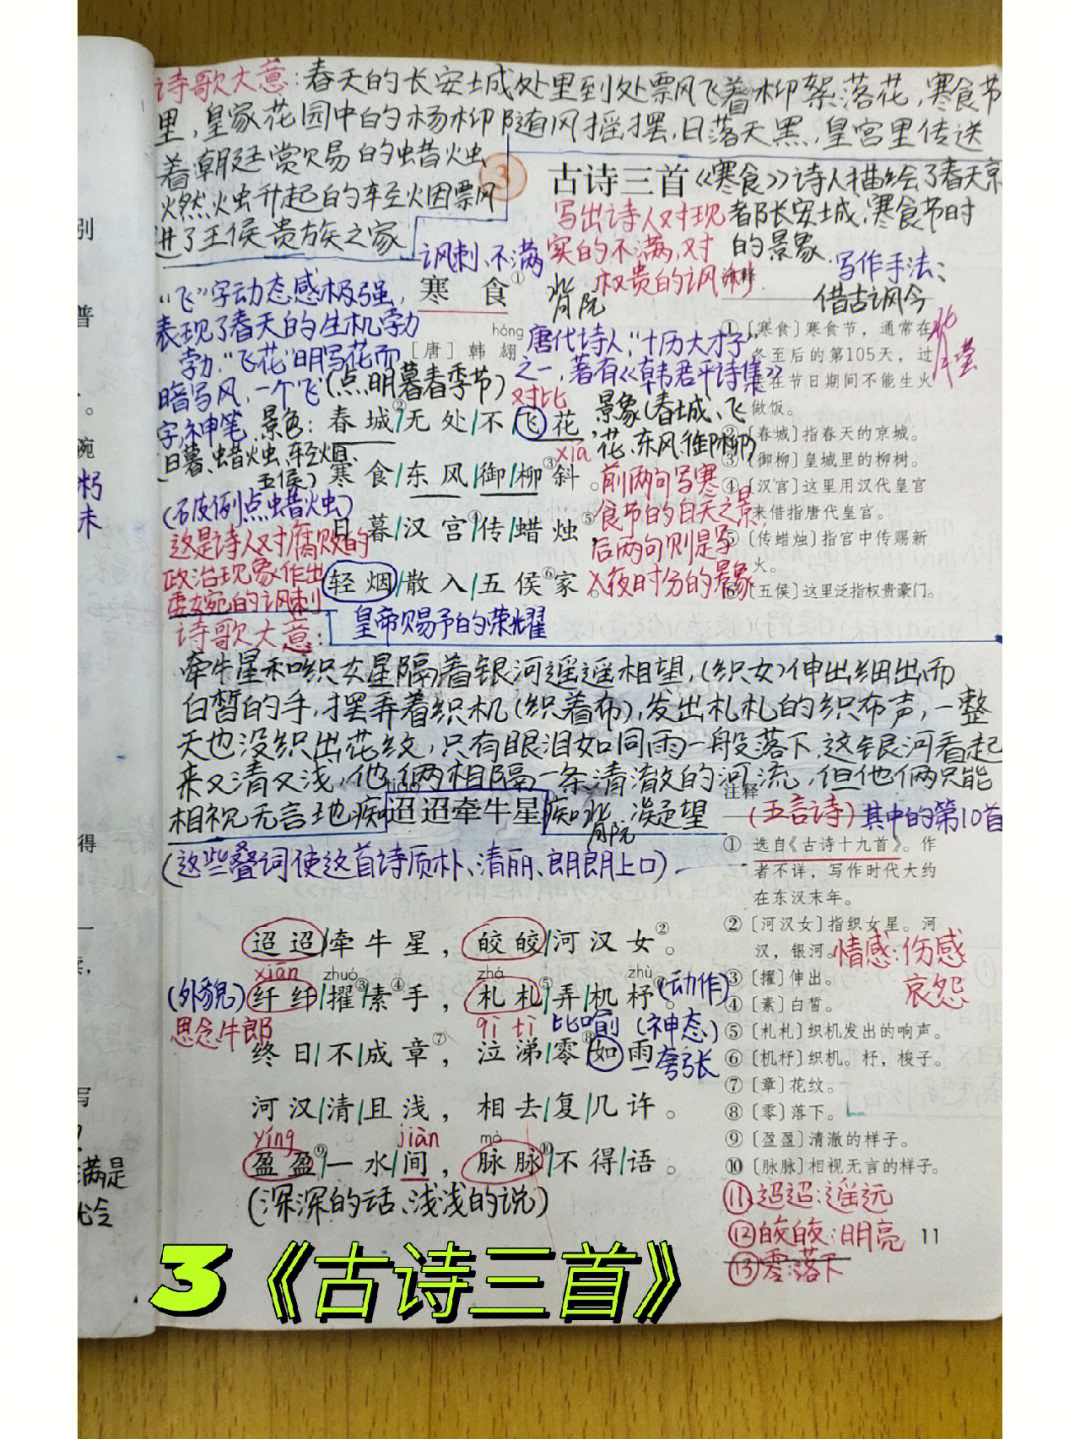 诗歌大意:春天的长安城处里到处飘飞着柳絮落花,寒食节
里,皇家花园中的杨柳随风摇摆,日落天黑,皇宫里传送
着朝廷赏赐的蜡烛
燃烛升起的轻烟飘
进了王侯贵族之家
③ 古诗三首《寒食》诗人描绘了春天京
写出诗人对现 者阝长安城,寒食节时
实的不满,对 的景象
权贵的讽刺.
写作手法:
借古讽今
讽刺、不满
寒 食① 背
“飞”字动态感极强,
表现了春天的生机勃
勃.“飞花”明写花而
暗写风,一个“飞”
字,神笔.景色:
(日暮、蜡烛、轻烟、
五侯)
[唐] 韩 翃
hóng
唐代诗人,“十历大才子”
之一,著有《韩君平诗集》
(点明暮春季节)
对比
春 城②|无 处|不|飞|花,
景象(春城、飞
花、东风、御柳)
xiá
寒 食|东 风|御|柳③斜。
前两句写寒
食节的白天之景,
后两句则是写
夜时分的景象
(破例点蜡烛)
日 暮|汉 宫④|传|蜡 烛⑤,
轻 烟|散 入|五 侯⑥家。
这是诗人对腐败的
政治现象作出
委婉的讽刺
皇帝赐予的荣耀
①〔寒食〕寒食节,通常在
冬至后的第105天,过
去在节日期间不能生火
做饭。
②〔春城〕指春天的京城。
③〔御柳〕皇城里的柳树。
④〔汉宫〕这里用汉代皇宫
来借指唐代皇宫。
⑤〔传蜡烛〕指宫中传赐新
火。
⑥〔五侯〕这里泛指权贵豪门。
诗歌大意:
牵牛星和织女星隔着银河遥遥相望,(织女)伸出细出而
白皙的手,摆弄着织机(织着布),发出札札的织布声,一整
天也没织出花纹,只有眼泪如同雨一般落下.这银河看起
来又清又浅,他俩相隔一条清澈的河流,但他俩只能
相视无言地痴
迢迢牵牛星
痴 凝望
背
(这些叠词使这首诗质朴、清丽、朗朗上口).
注释
(五言诗)其中的第10首
① 选自《古诗十九首》。作
者不详,写作时代大约
在东汉末年。
②〔河汉女〕指织女星。河
汉,银河。
情感:伤感
哀怨
③〔擢〕伸出。
④〔素〕白皙。
⑤〔札札〕织机发出的响声。
⑥〔机杼〕织机。杼,梭子。
⑦〔章〕花纹。
⑧〔零〕落下。
⑨〔盈盈〕清澈的样子。
⑩〔脉脉〕相视无言的样子。
⑪迢迢:遥远
⑫皎皎:明亮
⑬零:落下
迢 迢|牵 牛 星, 皎 皎|河 汉 女②。
xiān zhuó zhá zhù
(外貌)纤 纤|擢③素④手, 札 札⑤|弄|机 杼⑥。(动作)
思念牛郎
qì tì 比喻(神态)
终 日|不|成 章⑦, 泣 涕|零⑧|如|雨。
夸张
河 汉|清|且 浅, 相 去|复|几 许。
yíng jiàn mò
盈 盈⑨|一 水|间, 脉 脉⑩|不 得|语。
(深深的话、浅浅的说)
11
3《古诗三首》
别
普
。
碗
朽
未
得
一
写
满是